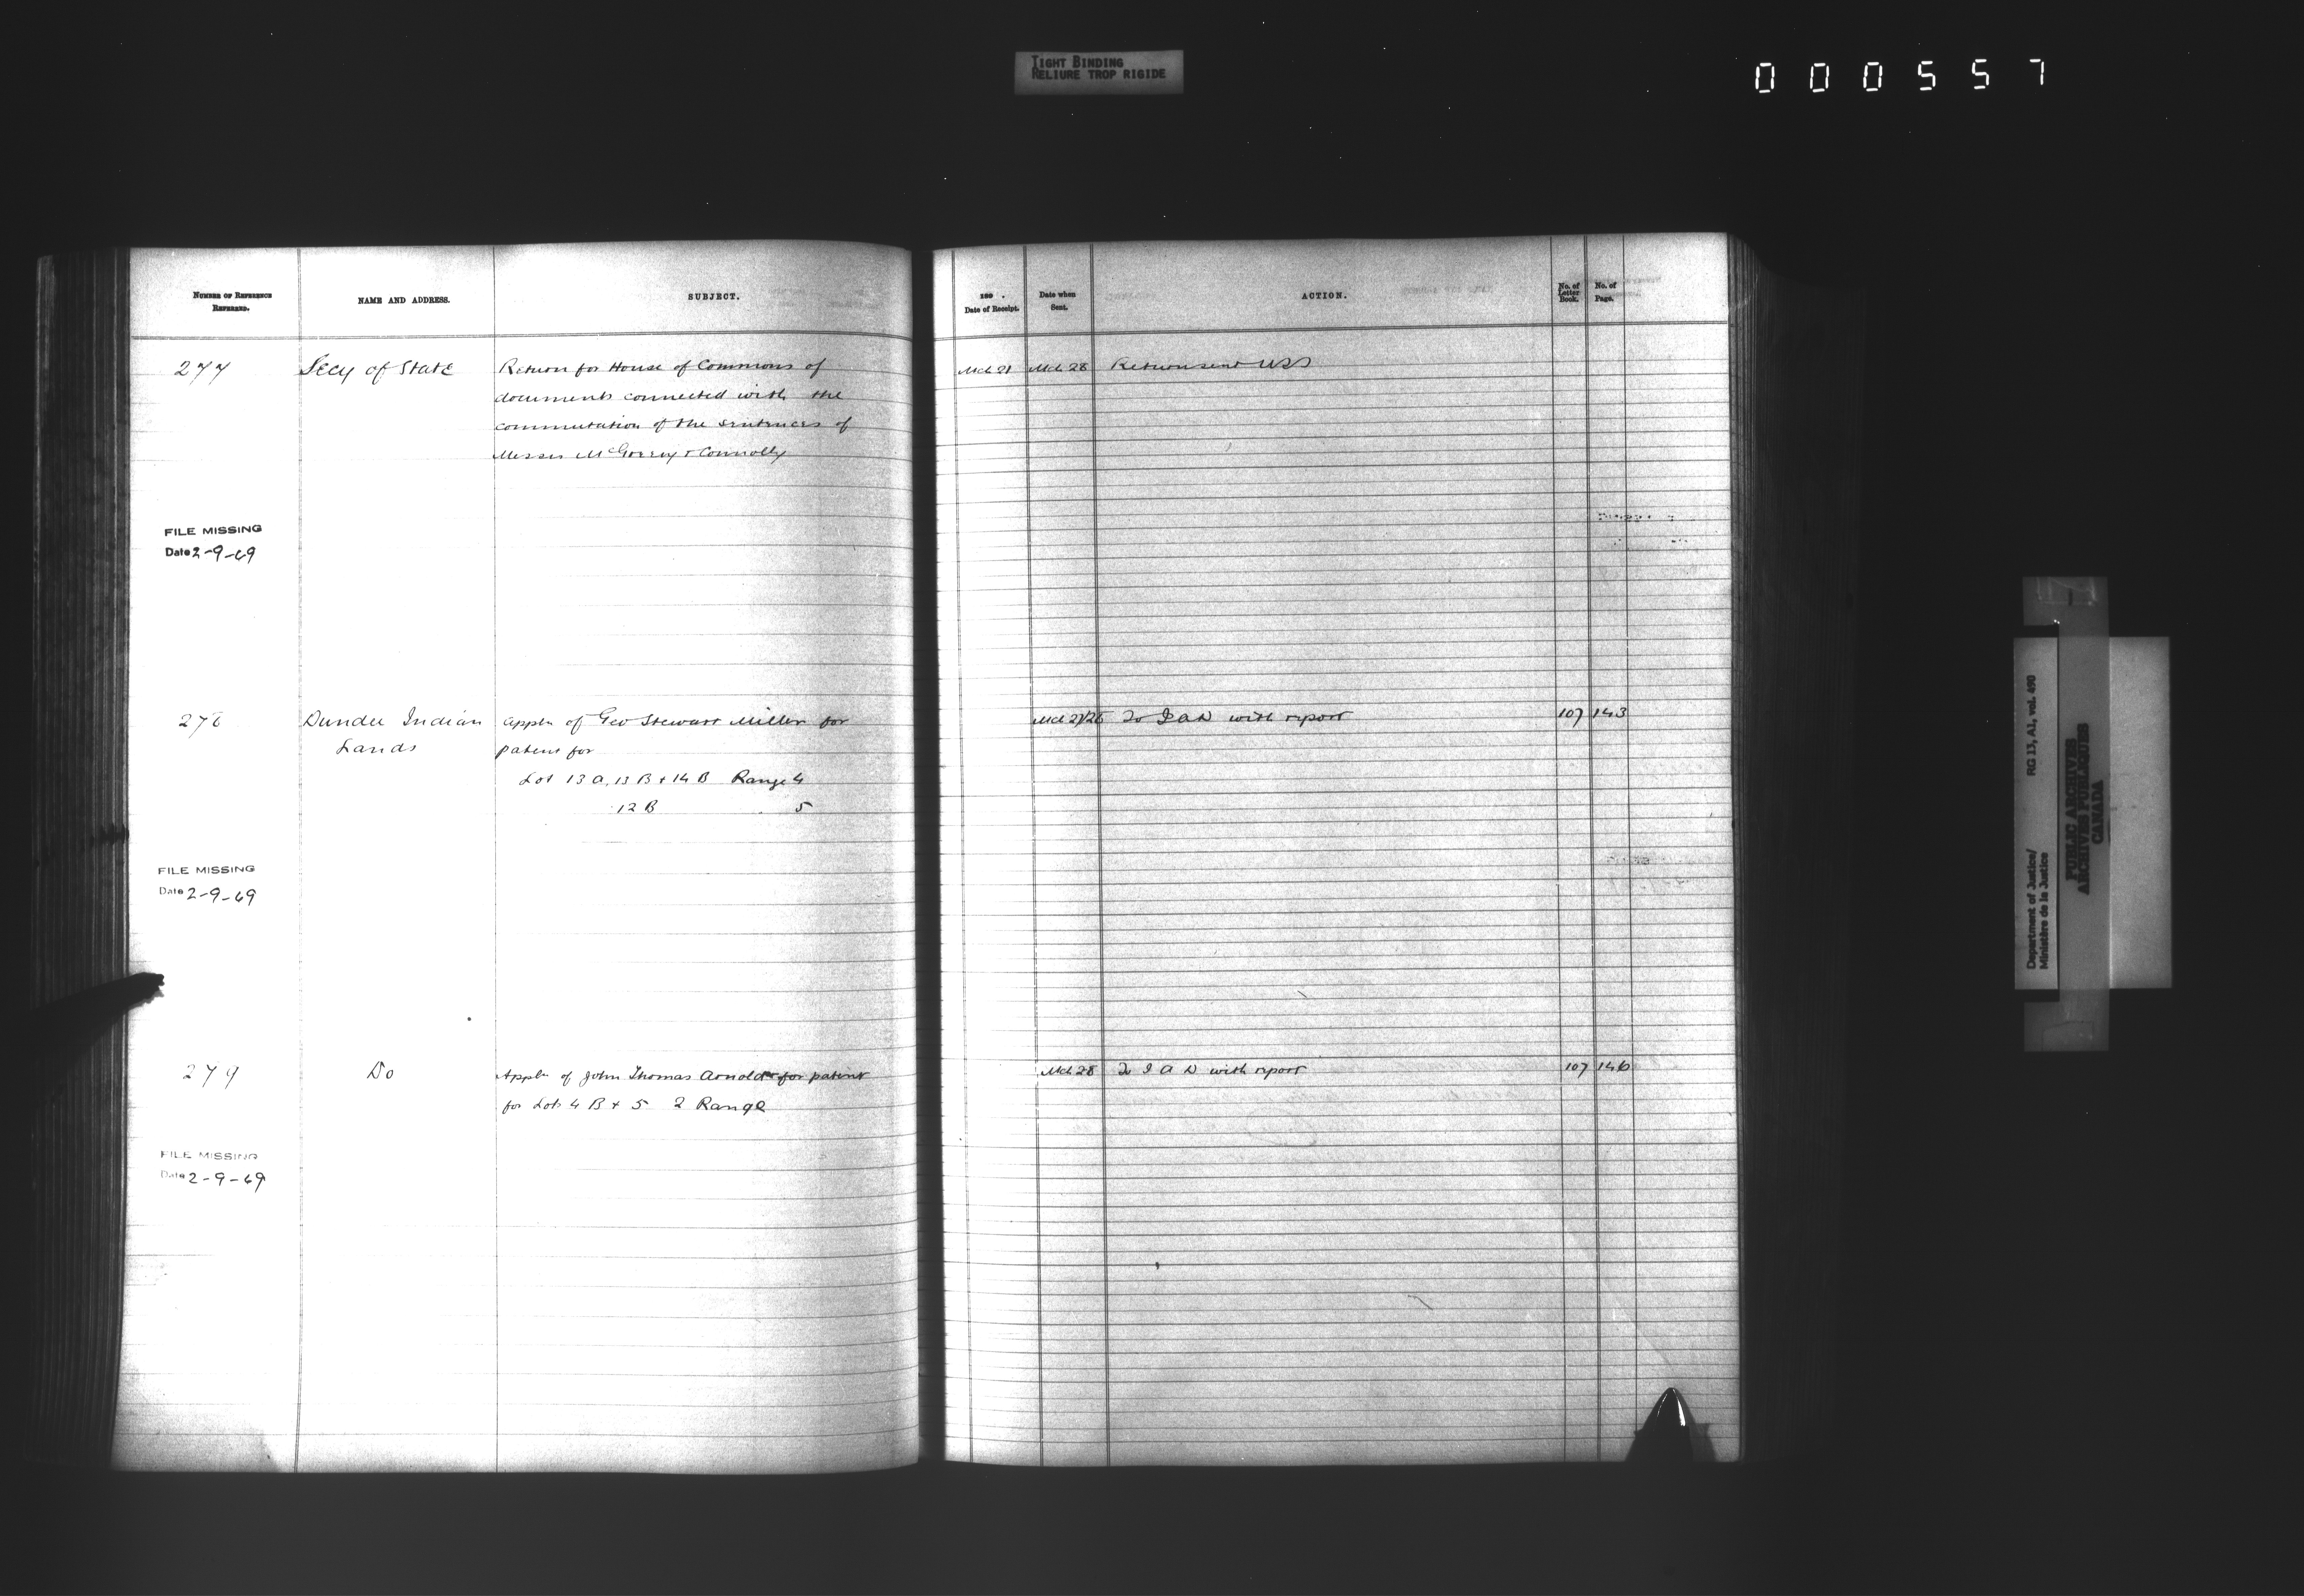 TIGHT BINDING
RELIURE TROP RIGIDE
000557
NUMBER OF REFERENCE
REFERRED.
NAME AND ADDRESS.
SUBJECT.
189 .
Date of Receipt.
Date when
Sent.
ACTION.
No. of
Letter
Book.
No. of
Page.
277 Secy of State Return for House of Commons of Mch 21 Mch 28 Return sent USS
documents connected with the
commutation of the sentences of
Messrs McGreevy & Connolly
FILE MISSING
Date 2-9-69
278 Dundee Indian Appln of Geo Stewart Miller for Mch 27/28 To I A D with report 107 143
Lands patent for
Lot 13 A, 13 B & 14 B Range 4
12 B 5
FILE MISSING
Date 2-9-69
279 Do Appln of John Thomas Arnold for patent Mch 28 To I A D with report 107 146
for Lots 4 B & 5 2 Range
FILE MISSING
Date 2-9-69
Department of Justice/
Ministère de la Justice
RG 13, A1, vol. 490
PUBLIC ARCHIVES
ARCHIVES PUBLIQUES
CANADA